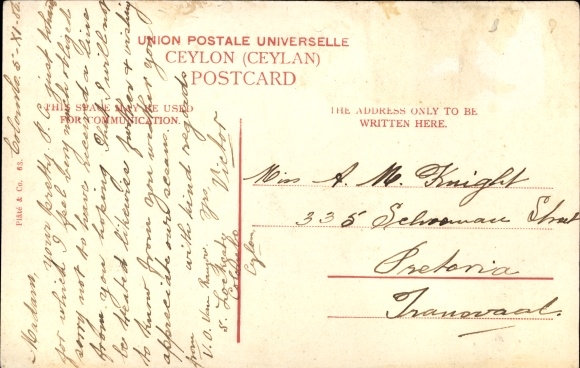 UNION POSTALE UNIVERSELLE
CEYLON (CEYLAN)
POSTCARD
THIS SPACE MAY BE USED
FOR COMMUNICATION.
THE ADDRESS ONLY TO BE
WRITTEN HERE.
Plâté & Co. 63.
Colombo. 5-XI-
Madam,
your pretty P. C. just
for which I feel very much
sorry not to have heard a line
from you hoping that I will not
be treated likewise further & wishing
to know from you wether you
appreciate our oceans.
with kind regards
Yrs
Victor
from
V. A.
5.
Colombo
Ceylon
Miss A. M. Knight
335 Schoeman Street
Pretoria
Transvaal.